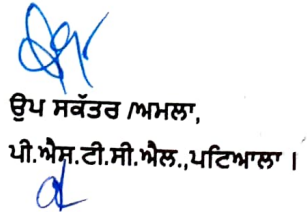 ਉਪ ਸਕੱਤਰ /ਅਮਲਾ,
ਪੀ.ਐਸ.ਟੀ.ਸੀ.ਐਲ.,ਪਟਿਆਲਾ ।